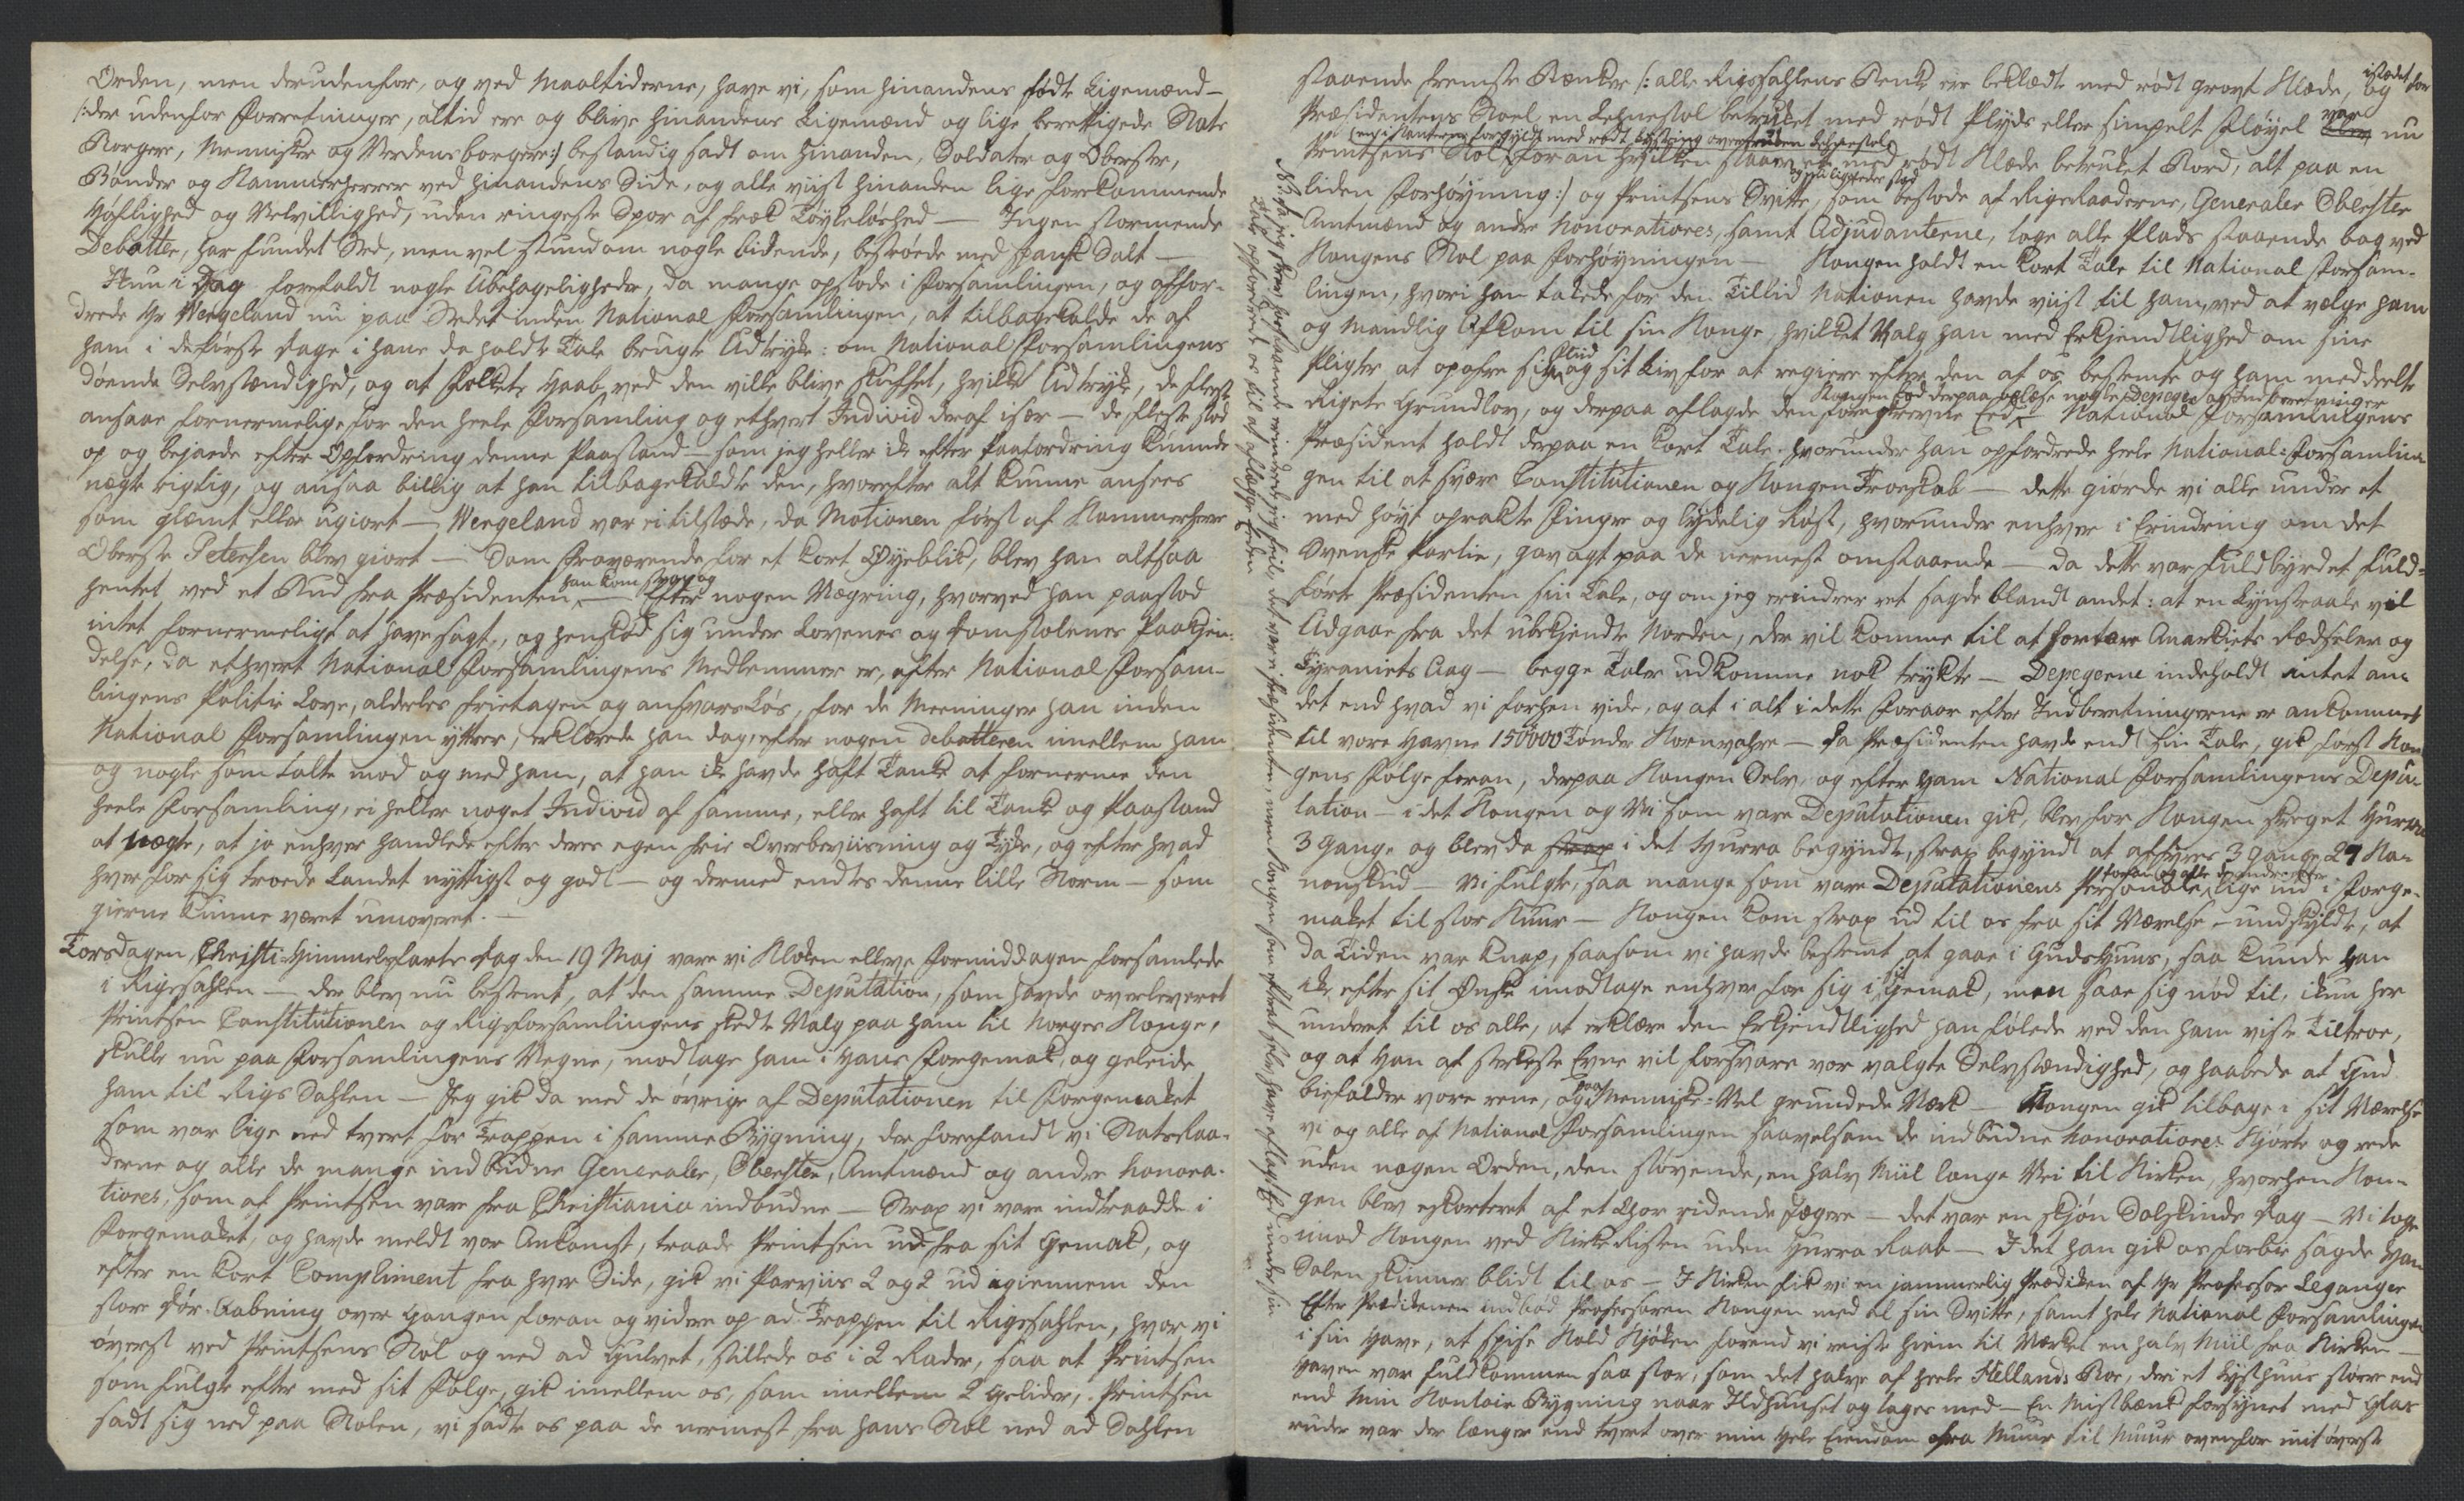 Orden, men derudenfor, og ved Maaltiderne, have vi, som hinandens fødte Ligemænd
/:der udenfor Forretninger, altid ere og blive hinandens Ligemænd og lige berettigede Stats
Borgere, Mennisker og Verdensborgere:/ bestandig sadt om hinanden, Soldater og Oberster,
Bønder og Kammerherrer ved hinandens Side, og alle viist hinanden lige forekommende
Høflighed og Velvillighed, uden ringeste Spor af fræk Tøyleløshed — Ingen stormende
Debatter, har fundet Sted, men vel stundom nogle bidende, bestrøede med Salt —
Kun i Dag forefaldt nogle Ubehageligheder, da mange opstode i Forsamlingen, og affor-
drede Hr Wergeland nu paa Stedet inden National Forsamlingen, at tilbagekalde de af
ham i de første Dage i hans da holdte Tale brugte Udtryk: om National Forsamlingens
døende Selvstændighed, og at Folkets Haab ved den ville blive skuffet, hvilke Udtryk, de fleste
ansaae fornermelige for den heele Forsamling og ethvert Individ deraf især — de fleste stod
op og bejaede efter Opfordring denne Paastand — som jeg heller ik efter Paafordring kunde
nægte rigtig, og ansaa billig at han tilbagekaldte den, hvorefter alt kunne ansees
som glemt eller ugiort — Wergeland var ei tilstæde, da Motionen først af Kammerherre
Oberste Petersen blev giort — Som fraværende for et kort Øyeblik, blev han altsaa
hentet ved et Bud fra Præsidenten — han kom og
Efter nogen Vægring, hvorved han paastod
intet fornermeligt at have sagt, og henskød sig under Lovenes og Domstolenes Paakjen-
delse, da ethvert National Forsamlingens Medlemmer er, efter National Forsam-
lingens Politie Love, aldeeles frietagen og ansvarsløs, for de Meeninger han inden
National Forsamlingen yttrer, erklærede han dog, efter nogen debatteren imellem ham
og nogle som talte mod og med ham, at han ik havde haft Tanke at fornerme den
heele Forsamling, ei heller noget Individ af samme, eller haft til Tanke og Paastand
at nægte, at jo enhver handlede efter deres egen frie Overbeviisning og Tykke, og efter hvad
hver for sig troede Landet nyttigst og godt — og dermed endtes denne lille Storm — som
gierne kunne været umoveret. —
Torsdagen Christi-Himmelfarts Dag den 19 Maj vare vi Klokken elleve Formiddagen forsamlede
i Rigssahlen — der blev nu bestemt, at den samme Deputation, som havde overleveret
Printsen Constitutionen og Rigsforsamlingens skedte Valg paa ham til Norges Konge,
skulle nu paa Forsamlingens Vegne, modtage ham i Hans Forgemak, og geleide
ham til Rigs Sahlen — Jeg gik da med de øvrige af Deputationen til Forgemaket
som var lige ned tvert for Trappen i samme Bygning, der forefandt vi Statsraa-
derne og alle de mange indbudne Generaler, Obersten, Amtmænd og andre honora-
tiores, som af Printsen vare fra Christiania indbudne — Strax vi vare indtraadde i
Forgemaket, og havde meldt vor Ankomst, traade Printsen ud fra sit Gemak, og
efter en kort Compliment fra hver Side, gik vi Parviis 2 og 2 ud igiennem den
store Dør-Aabning over Gangen foran og videre op ad Trappen til Rigssahlen, hvor vi
øverst ved Printsens Stol og ned ad Gulvet, stillede os i 2 Rader, saa at Printsen
som fulgte efter med sit Følge, gik imellem os, som imellem 2 Gelider, Printsen
sadt sig ned paa Stolen, vi sadte os paa de nermest fra hans Stol ned ad Sahlen
staaende fremste Bænker /: alle Rigssahlens Benke ere beklædte med rødt grovt Klæde, og istædet for
Præsidentens Stoel, en Lehnestol betrukket med rødt Plyds eller simpelt Fløyel var nu
Printsens Stol, foran hvilken staaer et med rødt Klæde betrukket Bord, alt paa en
liden Forhøyning:/ og Printsens Svitte, som bestode af Rigsraaderne, Generaler Oberster
Amtmænd og andre Honoratiores, samt Adjudanterne, toge alle Plads staaende bag ved
Kongens Stol paa Forhøyningen — Kongen holdt en kort Tale til National Forsam-
lingen, hvori han takkede for den Tillid Nationen havde viist til ham, ved at vælge ham
og mandlig Afkom til sin Konge, hvilket Valg han med Erkjendtlighed om sine
Pligter at opofre sin Fliid og sit Liv for at regiere efter den af os bestemte og ham meddeelte
Rigets Grundlov, og derpaa aflagde den foreskrevne Eed — Kongen lod derpaa oplæse nogle Depecher og Indberetninger
National Forsamlingens
Præsident holdt derpaa en kort Tale, hvorunder han opfordrede heele National-Forsamlin-
gen til at svære Constitutionen og Kongen Troeskab — dette giorde vi alle under et
med høyt oprakte Finger og lydelig Røst, hvorunder enhver i Erindring om det
Svenske Partie, gav agt paa de nermest omstaaende — da dette var fuldbyrdet fuld-
førte Præsidenten sin Tale, og om jeg erindrer ret sagde blandt andet: at en Lynstraale vil
Udgaae fra det ubekjendte Norden, der vil komme til at fortære Anarkiets Rædseler og
Tyraniets Aag — begge Taler udkomme nok trykte — Depecherne indeholdt intet an-
det end hvad vi forhen vide, og at i alt i dette Foraar efter Indberetningerne er ankommet
til vore Havne 150000 Tønder Kornvahre — Da Præsidenten havde endt sin Tale, gik først Kon-
gens Følge foran, derpaa Kongen Selv, og efter Ham National Forsamlingens Depu-
tation — i det Kongen og Vi som vare Deputationen gik, blev for Kongen skreget Hurra
3 Gange og blev da i det Hurra begyndte, strax begyndt at affyres 3 Gange 27 Ka-
nonskud — Vi fulgte, saa mange som vare Deputationens Personale, lige ind i Forge-
maket til stor Kuur — Kongen kom strax ud til os fra sit Værelse — undskyldte, at
da Tiden var knap, saasom vi havde bestemt at gaae i Guds Huus, saa kunde Han
ik, efter sit Ønske imodtage enhver for sig i sit Gemak, men saae sig nød til, ikun her
underet til os alle, at erklære den Erkjendtlighed han følede ved den ham viste Tiltroe,
og at Han af sterkeste Evne vil forsvare vor valgte Selvstændighed, og haabede at Gud
biefalder vore rene, og paa Menniske-Vel grundede Værk — Kongen gik tilbage i sit Værelse
vi og alle af National Forsamlingen saavelsom de indbudne honoratiores kjørte og rede
uden nogen Orden, den støvende, en halv Miil lange Vei til Kirken, hvorhen Kon-
gen blev eskorteret af et Chor ridende Jægere — det var en skjøn Solskinds Dag — Vi toge
imod Kongen ved Kirke Risten uden Hurra Raab — I det han gik os forbie sagde Han
Solen skinner blidt til os — I Kirken fik vi en jammerlig Prædiken af Hr Professor Leganger
Efter Prædikenen indbød Professoren Kongen med al sin Svitte, samt hele National Forsamlingen
i sin Have, at spise Kold Kjøken forend vi reiste hiem til Værket en halv Miil fra Kirken —
Haven var fuldkommen saa stor, som det halve af heele Hellands Roe, deri et Lysthuus større end
end Min Kontoir Bygning naar Ildhuuset og tages med — En Mistbenk forsynet med Glas
ruder var der længer end tvert over min hele Eiendom fra Muur til Muur ovenfor mit øverste
NB: da jeg skrev foranstaaende erindrede jeg feil, det var ei Præsidenten, men Kongen som efterat selv have aflagt Eed under sin
Tale opfordrede os til at aflægge Eeden